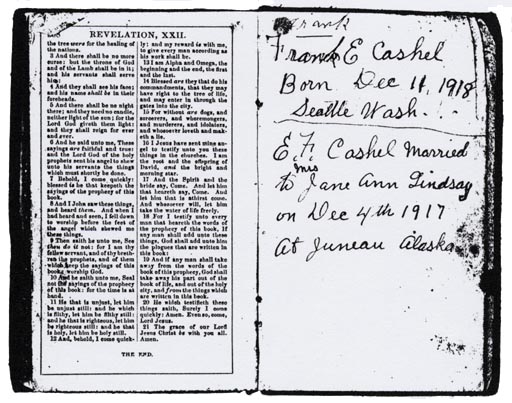 REVELATION, XXII.
the tree were for the healing of
the nations.
3 And there shall be no more
curse: but the throne of God
and of the Lamb shall be in it;
and his servants shall serve
him:
4 And they shall see his face;
and his name shall be in their
foreheads.
5 And there shall be no night
there; and they need no candle,
neither light of the sun; for the
Lord God giveth them light:
and they shall reign for ever
and ever.
6 And he said unto me, These
sayings are faithful and true:
and the Lord God of the holy
prophets sent his angel to shew
unto his servants the things
which must shortly be done.
7 Behold, I come quickly:
blessed is he that keepeth the
sayings of the prophecy of this
book.
8 And I John saw these things,
and heard them. And when I
had heard and seen, I fell down
to worship before the feet of
the angel which shewed me
these things.
9 Then saith he unto me, See
thou do it not: for I am thy
fellow servant, and of thy breth-
ren the prophets, and of them
which keep the sayings of this
book: worship God.
10 And he saith unto me, Seal
not the sayings of the prophecy
of this book: for the time is at
hand.
11 He that is unjust, let him
be unjust still: and he which
is filthy, let him be filthy still:
and he that is righteous, let him
be righteous still: and he that
is holy, let him be holy still.
12 And, behold, I come quick-
ly; and my reward is with me,
to give every man according as
his work shall be.
13 I am Alpha and Omega, the
beginning and the end, the first
and the last.
14 Blessed are they that do his
commandments, that they may
have right to the tree of life,
and may enter in through the
gates into the city.
15 For without are dogs, and
sorcerers, and whoremongers,
and murderers, and idolators,
and whosoever loveth and mak-
eth a lie.
16 I Jesus have sent mine an-
gel to testify unto you these
things in the churches. I am
the root and the offspring of
David, and the bright and
morning star.
17 And the Spirit and the
bride say, Come. And let him
that heareth say, Come. And
let him that is athirst come.
And whosoever will, let him
take the water of life freely.
18 For I testify unto every
man that heareth the words of
the prophecy of this book, If
any man shall add unto these
things, God shall add unto him
the plagues that are written in
this book:
19 And if any man shall take
away from the words of the
book of this prophecy, God shall
take away his part out of the
book of life, and out of the holy
city, and from the things which
are written in this book.
20 He which testifieth these
things saith, Surely I come
quickly: Amen. Even so, come,
Lord Jesus.
21 The grace of our Lord
Jesus Christ be with you all.
Amen.
THE END.
Frank
Frank E Cashel
Born Dec 11, 1918
Seattle Wash. . .
E. F. Cashel Married
to Miss Jane Ann Lindsay
on Dec 4th 1917
At Juneau Alaska